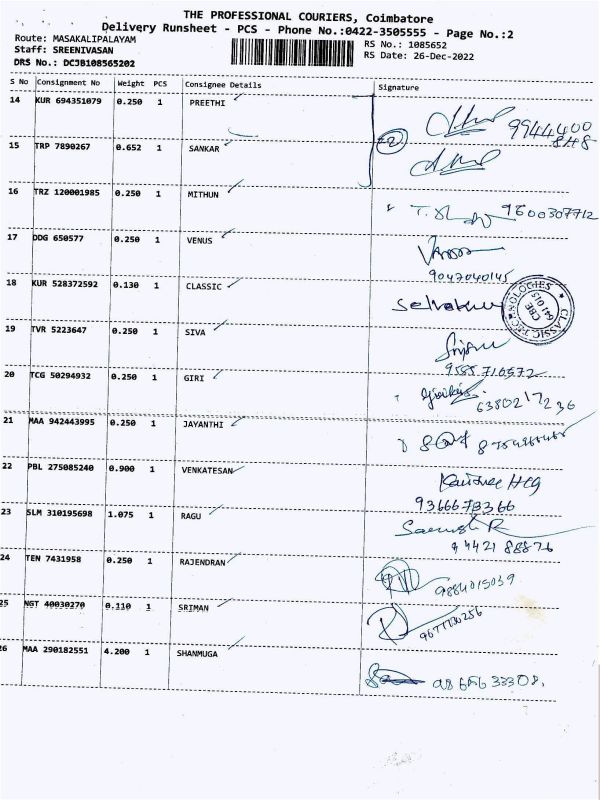 THE PROFESSIONAL COURIERS, Coimbatore
Delivery Runsheet - PCS - Phone No.:0422-3505555 - Page No.:2
Route: MASAKALIPALAYAM
Staff: SREENIVASAN
DRS No.: DCJB108565202
RS No.: 1085652
RS Date: 26-Dec-2022
S No Consignment No Weight PCS Consignee Details Signature
14 KUR 694351079 0.250 1 PREETHI
9944400
848
15 TRP 7890267 0.652 1 SANKAR
16 TRZ 120001985 0.250 1 MITHUN 9600307712
17 DDG 650577 0.250 1 VENUS
9047040145
18 KUR 528372592 0.130 1 CLASSIC Selvakum
CLASSIC TECHNOLOGIES
CBE
641 015
19 TVR 5223647 0.250 1 SIVA
9585710572
20 TCG 50294932 0.250 1 GIRI
6380217236
21 MAA 942443995 0.250 1 JAYANTHI
22 PBL 275085240 0.900 1 VENKATESAN
9366678366
23 SLM 310195698 1.075 1 RAGU
24 TEN 7431958 0.250 1 RAJENDRAN 9884015039
25 NGT 40030270 0.110 1 SRIMAN 9677730256
26 MAA 290182551 4.200 1 SHANMUGA